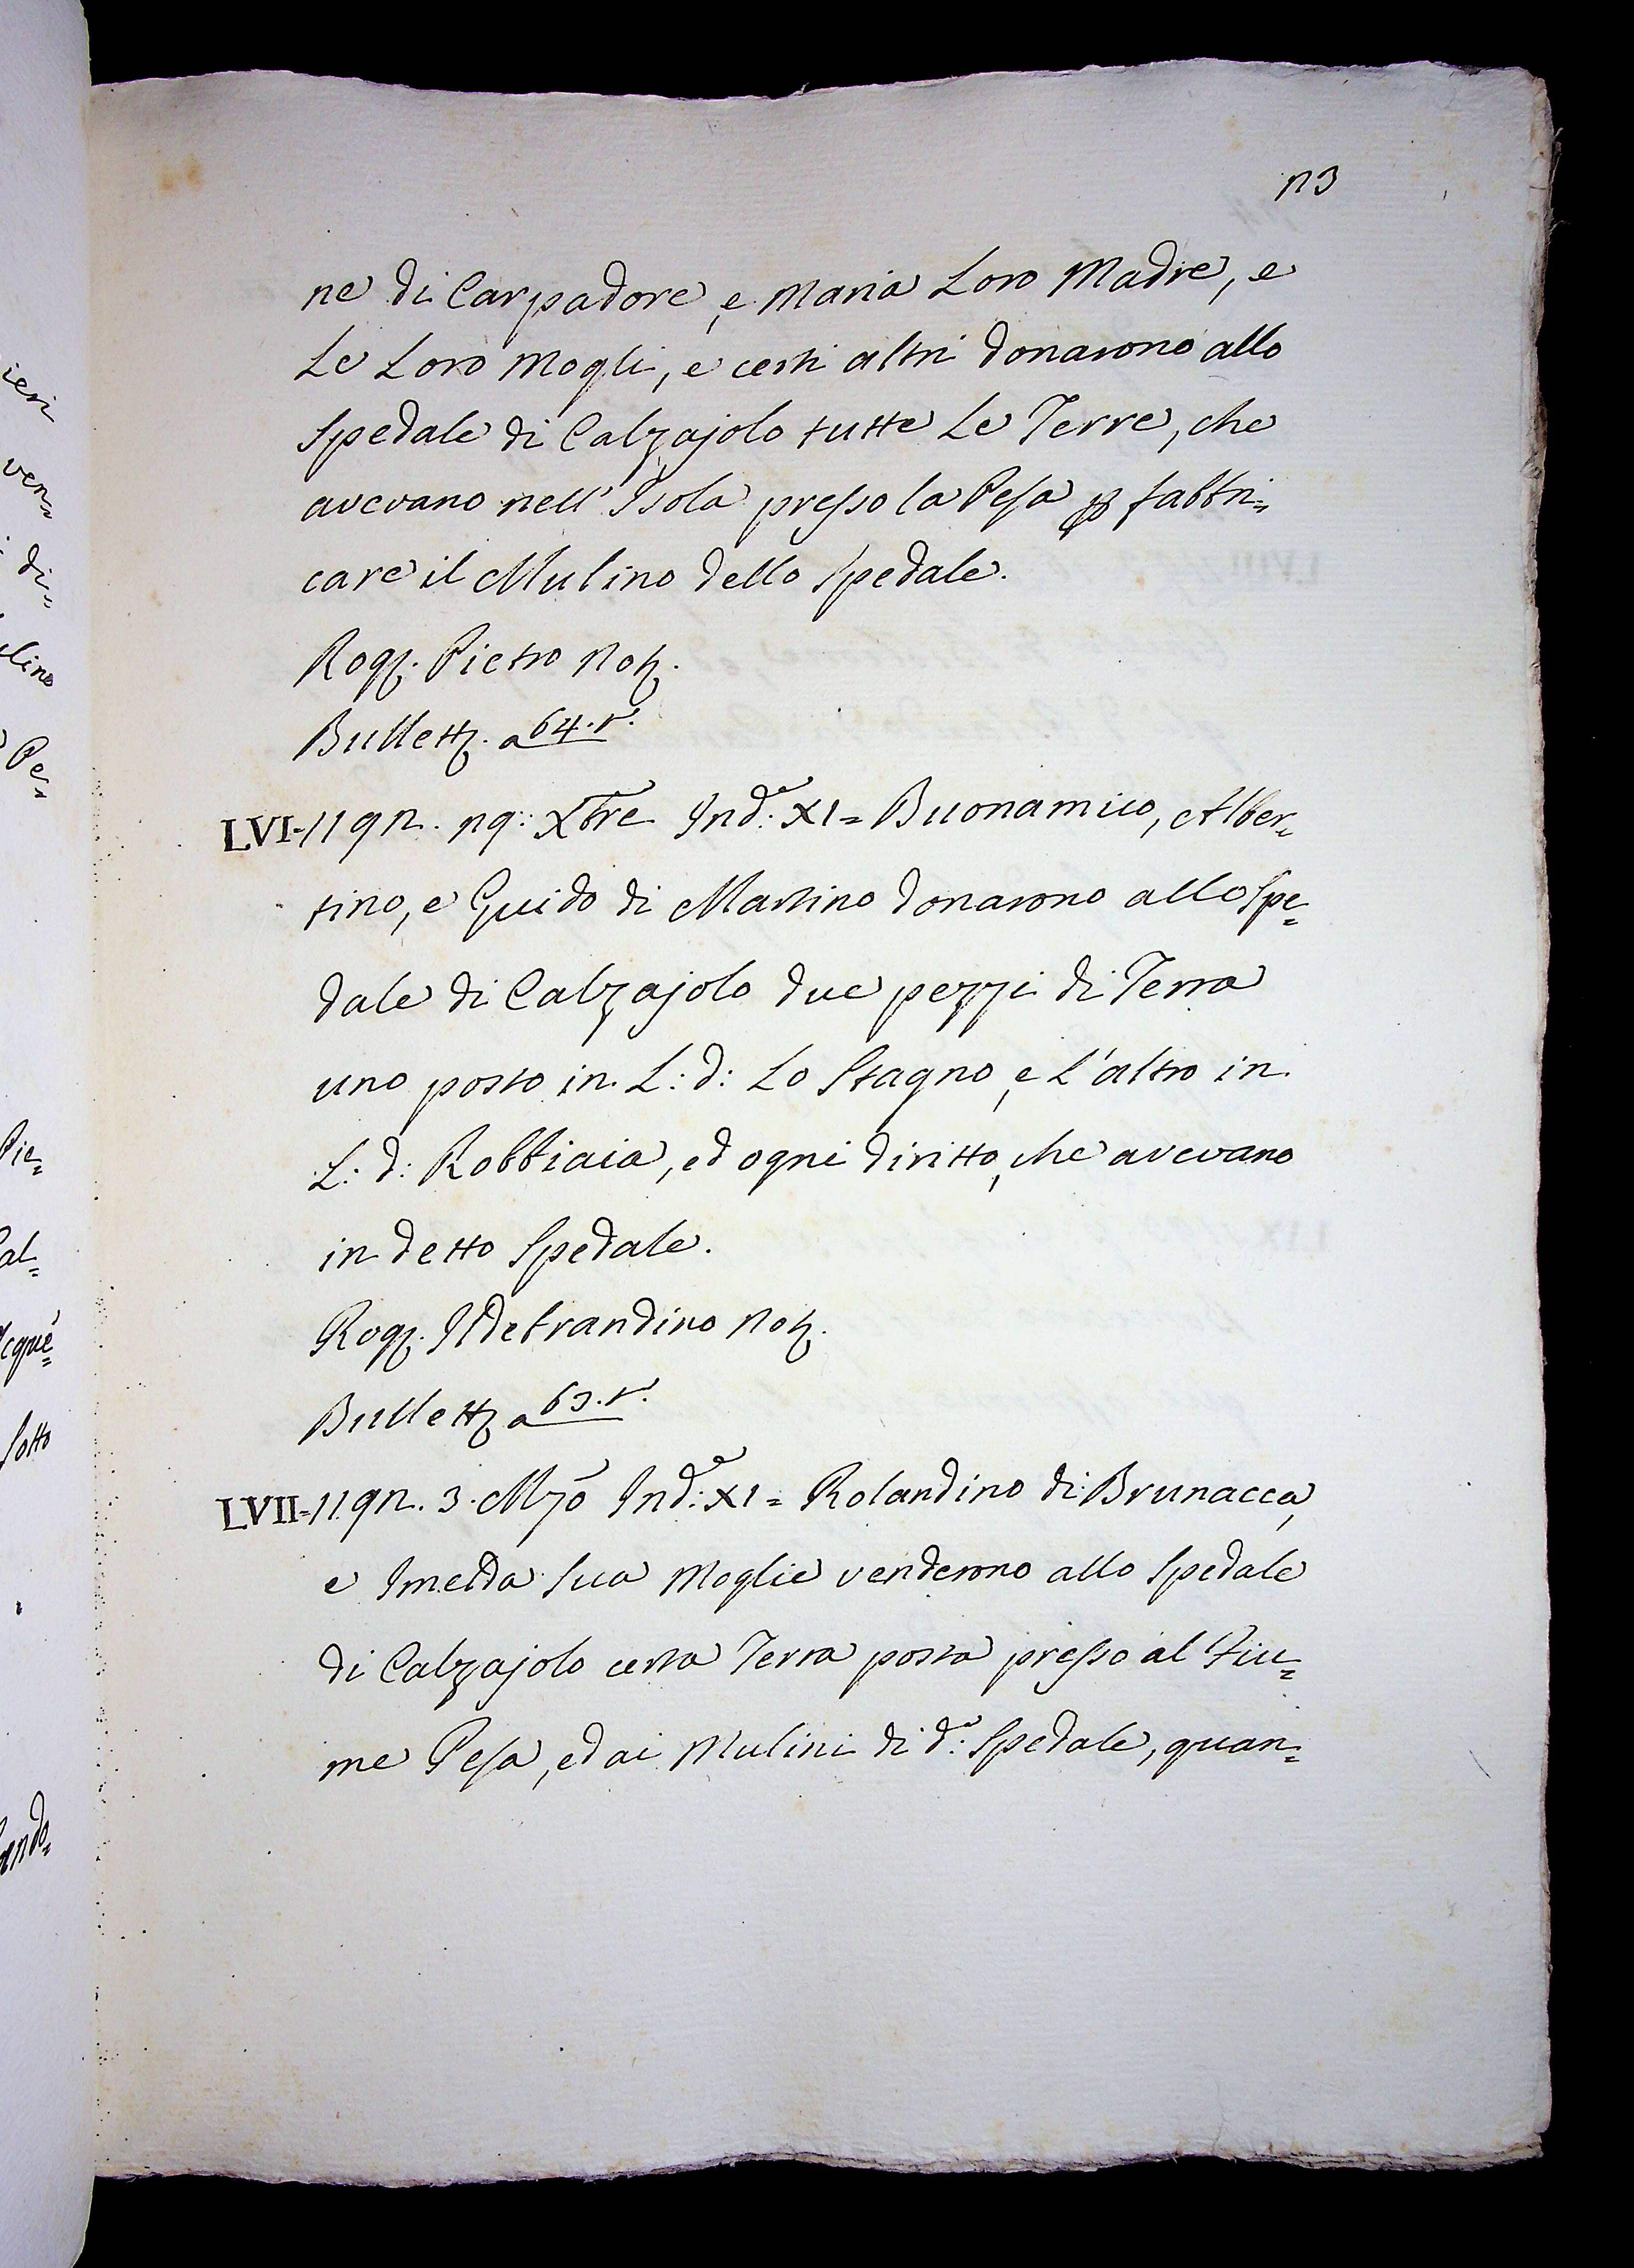 ieri
ven=
di=
lino
Pe=
Pie=
al=
sotto
ando=
23
ne di Carpadore, e Maria Loro Madre, e
Le Loro Mogli, e certi altri donarono allo
Spedale di Calzajolo tutte Le Terre, che
avevano nell' Isola presso la Pesa p fabbri=
care il Mulino dello Spedale.
Rogz. Pietro Notz.
Bullettz. a 64. r.
LVI-1192. 29: Xbre Ind.e: XI= Buonamico, Alber=
tino, e Guido di Martino donarono allo Spe=
dale di Calzajolo due pezzi di Terra
uno posto in L: d: Lo Stagno, e L'altro in
L: d: Robbiaia, ed ogni diritto, che avevano
in detto Spedale.
Rogz. Ildebrandino Notz.
Bullettz a 63. r.
LVII-1192. 3. Mzo Ind.e: XI= Rolandino di Brunacca,
e Imelda Sua Moglie venderono allo Spedale
di Calzajolo certa Terra posta presso al Fiu=
me Pesa, ed ai Mulini di d.o: Spedale, quan=